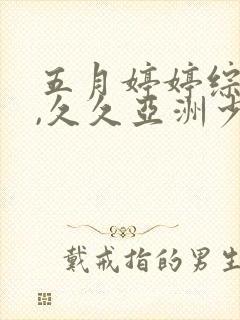 五月婷婷综
,久久亞洲少
戴戒指的男生